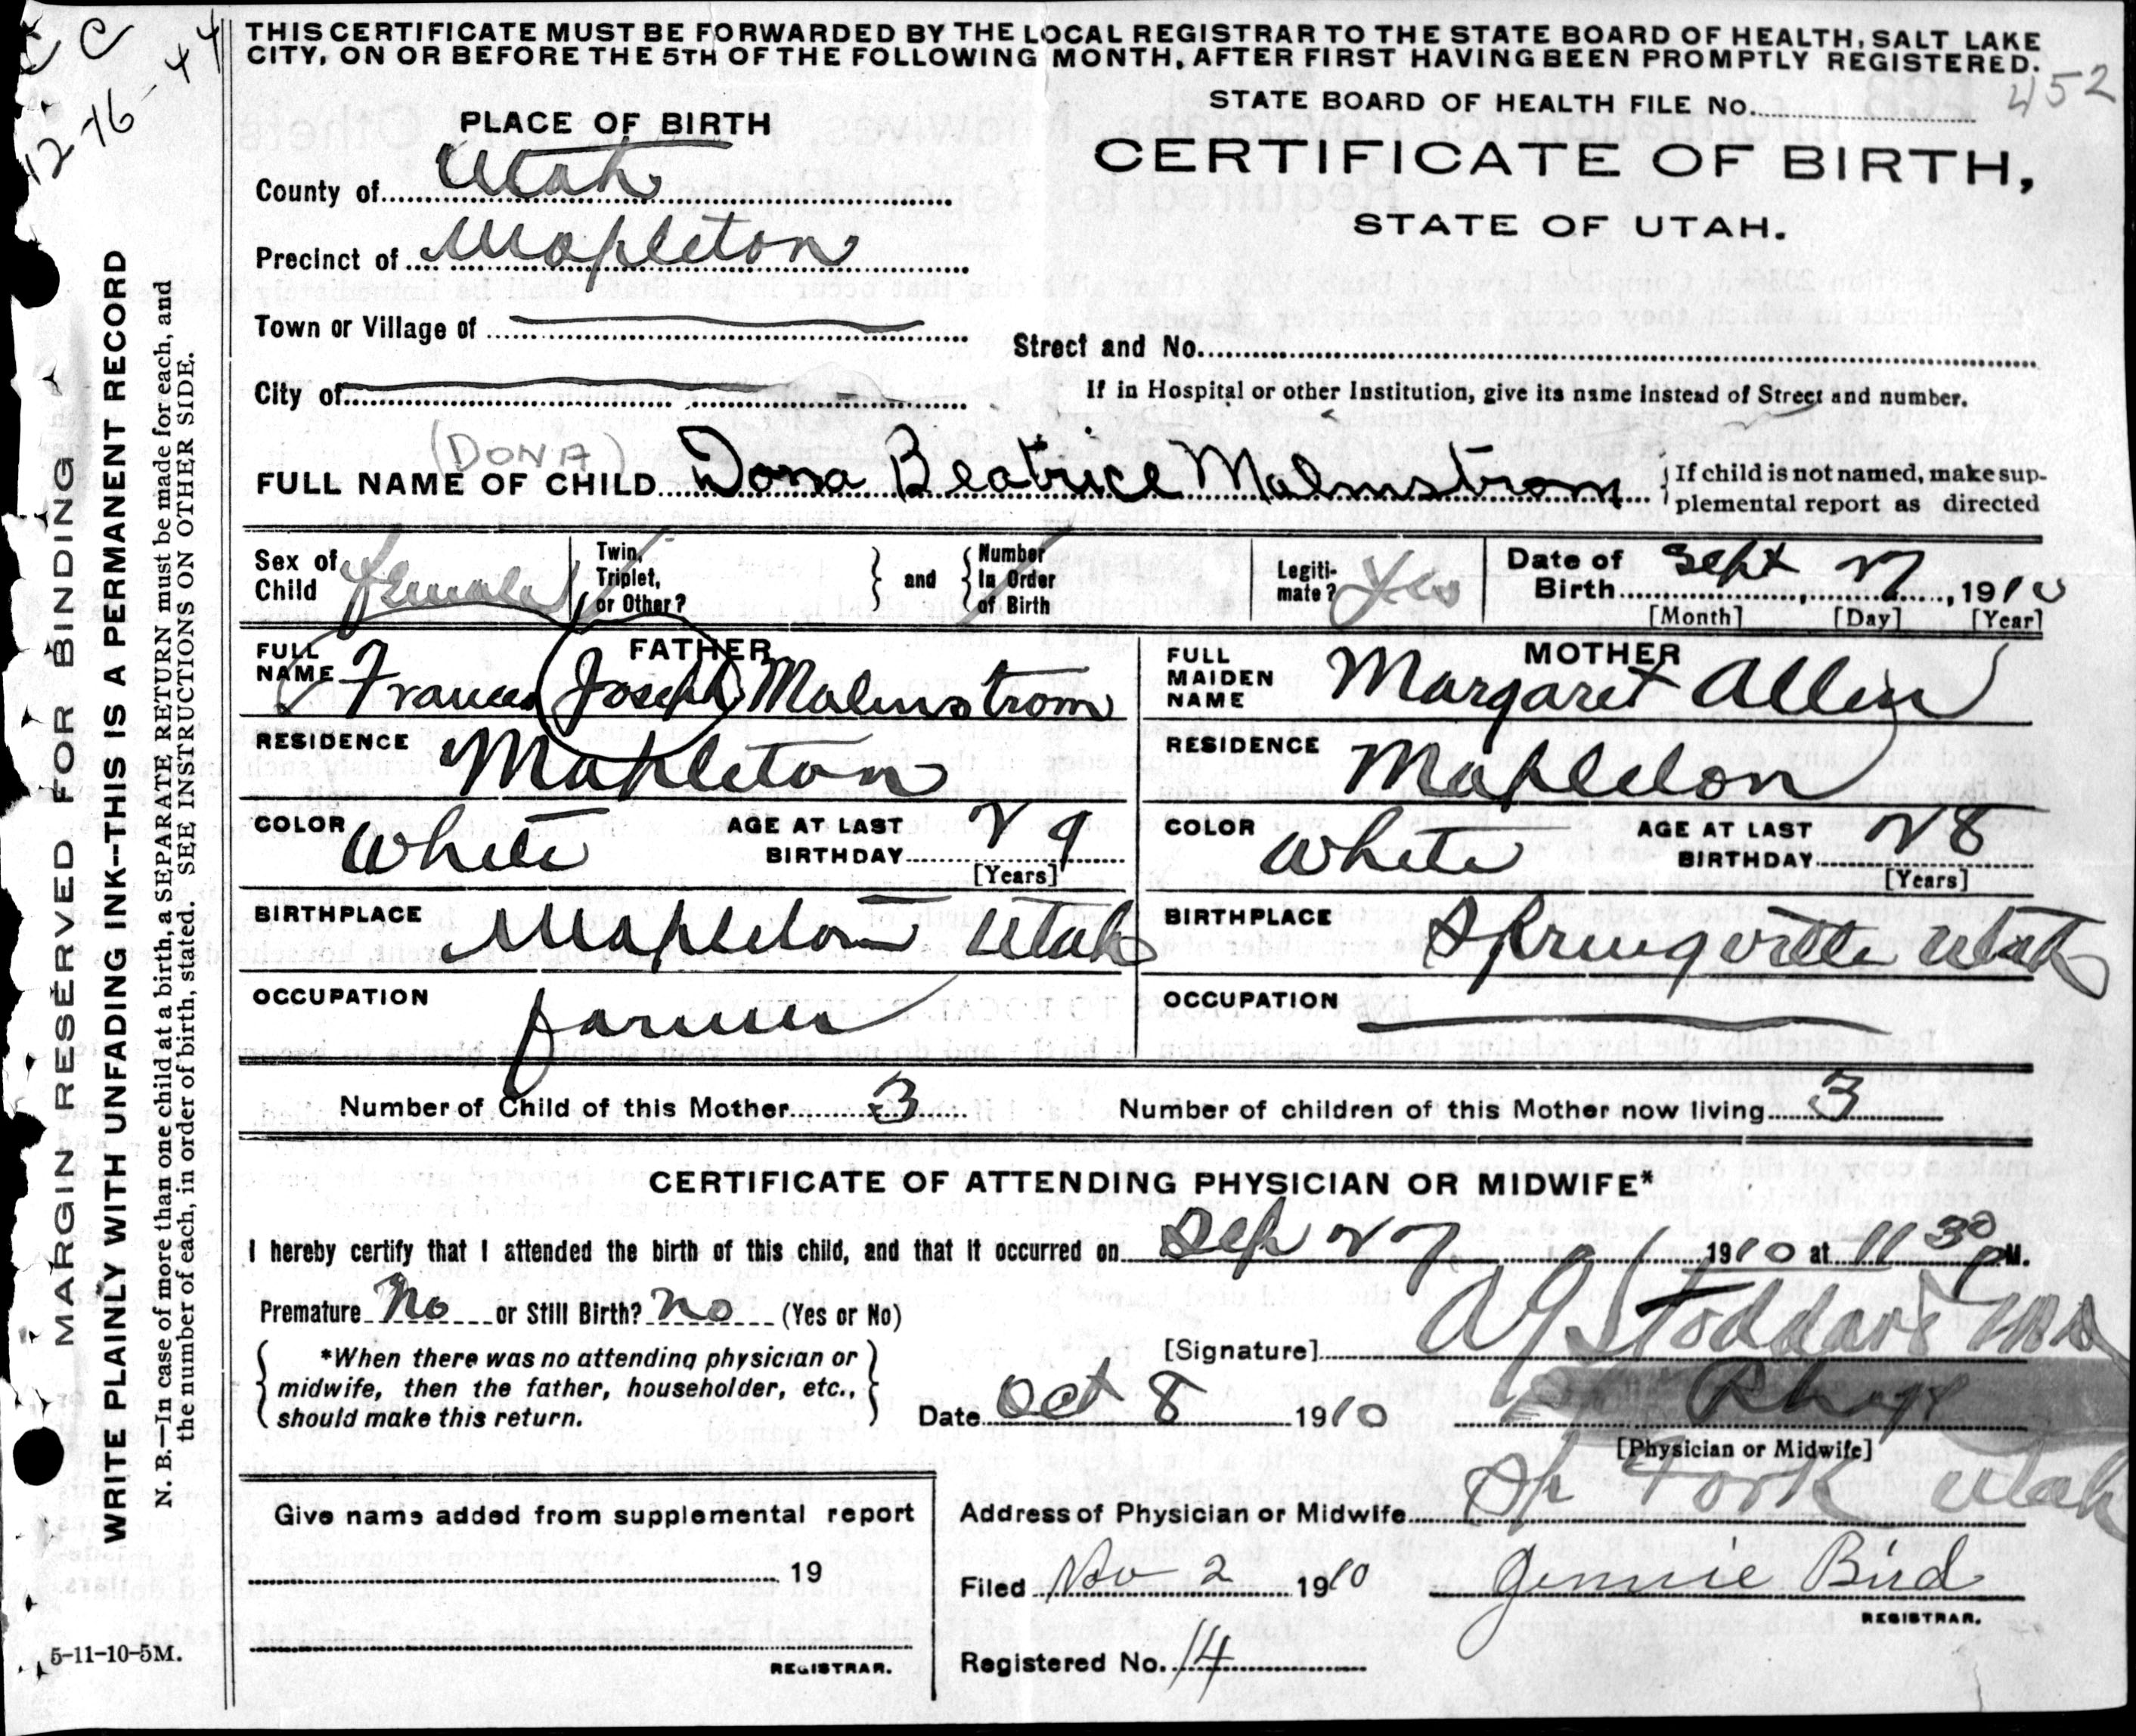 CC
12-16-44
THIS CERTIFICATE MUST BE FORWARDED BY THE LOCAL REGISTRAR TO THE STATE BOARD OF HEALTH, SALT LAKE
CITY, ON OR BEFORE THE 5TH OF THE FOLLOWING MONTH, AFTER FIRST HAVING BEEN PROMPTLY REGISTERED.
452
STATE BOARD OF HEALTH FILE No.
PLACE OF BIRTH
CERTIFICATE OF BIRTH,
STATE OF UTAH.
County of Utah
Precinct of Mapleton
Town or Village of
Street and No.
City of
If in Hospital or other Institution, give its name instead of Street and number.
(DONA)
FULL NAME OF CHILD Dona Beatrice Malmstrom
If child is not named, make sup-
plemental report as directed
Sex of
Child female
Twin,
Triplet,
or Other?
and
Number
In Order
of Birth
Legiti-
mate? Yes
Date of
Birth Sept 27, 1910
[Month] [Day] [Year]
FATHER
FULL
NAME Frances Joseph Malmstrom
MOTHER
FULL
MAIDEN
NAME Margaret Allen
RESIDENCE Mapleton
RESIDENCE Mapleton
COLOR White
AGE AT LAST
BIRTHDAY 29
[Years]
COLOR White
AGE AT LAST
BIRTHDAY 28
[Years]
BIRTHPLACE Mapleton Utah
BIRTHPLACE Springville Utah
OCCUPATION farmer
OCCUPATION
Number of Child of this Mother 3
Number of children of this Mother now living 3
CERTIFICATE OF ATTENDING PHYSICIAN OR MIDWIFE*
I hereby certify that I attended the birth of this child, and that it occurred on Sep 27, 1910 at 11 30 P M.
Premature No or Still Birth? no (Yes or No)
[Signature] Stoddard MD
*When there was no attending physician or
midwife, then the father, householder, etc.,
should make this return.
Date Oct 8 1910
[Physician or Midwife]
Give name added from supplemental report
19
REGISTRAR.
Address of Physician or Midwife Sp Fork Utah
Filed Nov 2 1910 Jennie Bird
REGISTRAR.
Registered No. 14
MARGIN RESERVED FOR BINDING
WRITE PLAINLY WITH UNFADING INK--THIS IS A PERMANENT RECORD
N. B.—In case of more than one child at a birth, a SEPARATE RETURN must be made for each, and
the number of each, in order of birth, stated. SEE INSTRUCTIONS ON OTHER SIDE.
5-11-10-5M.